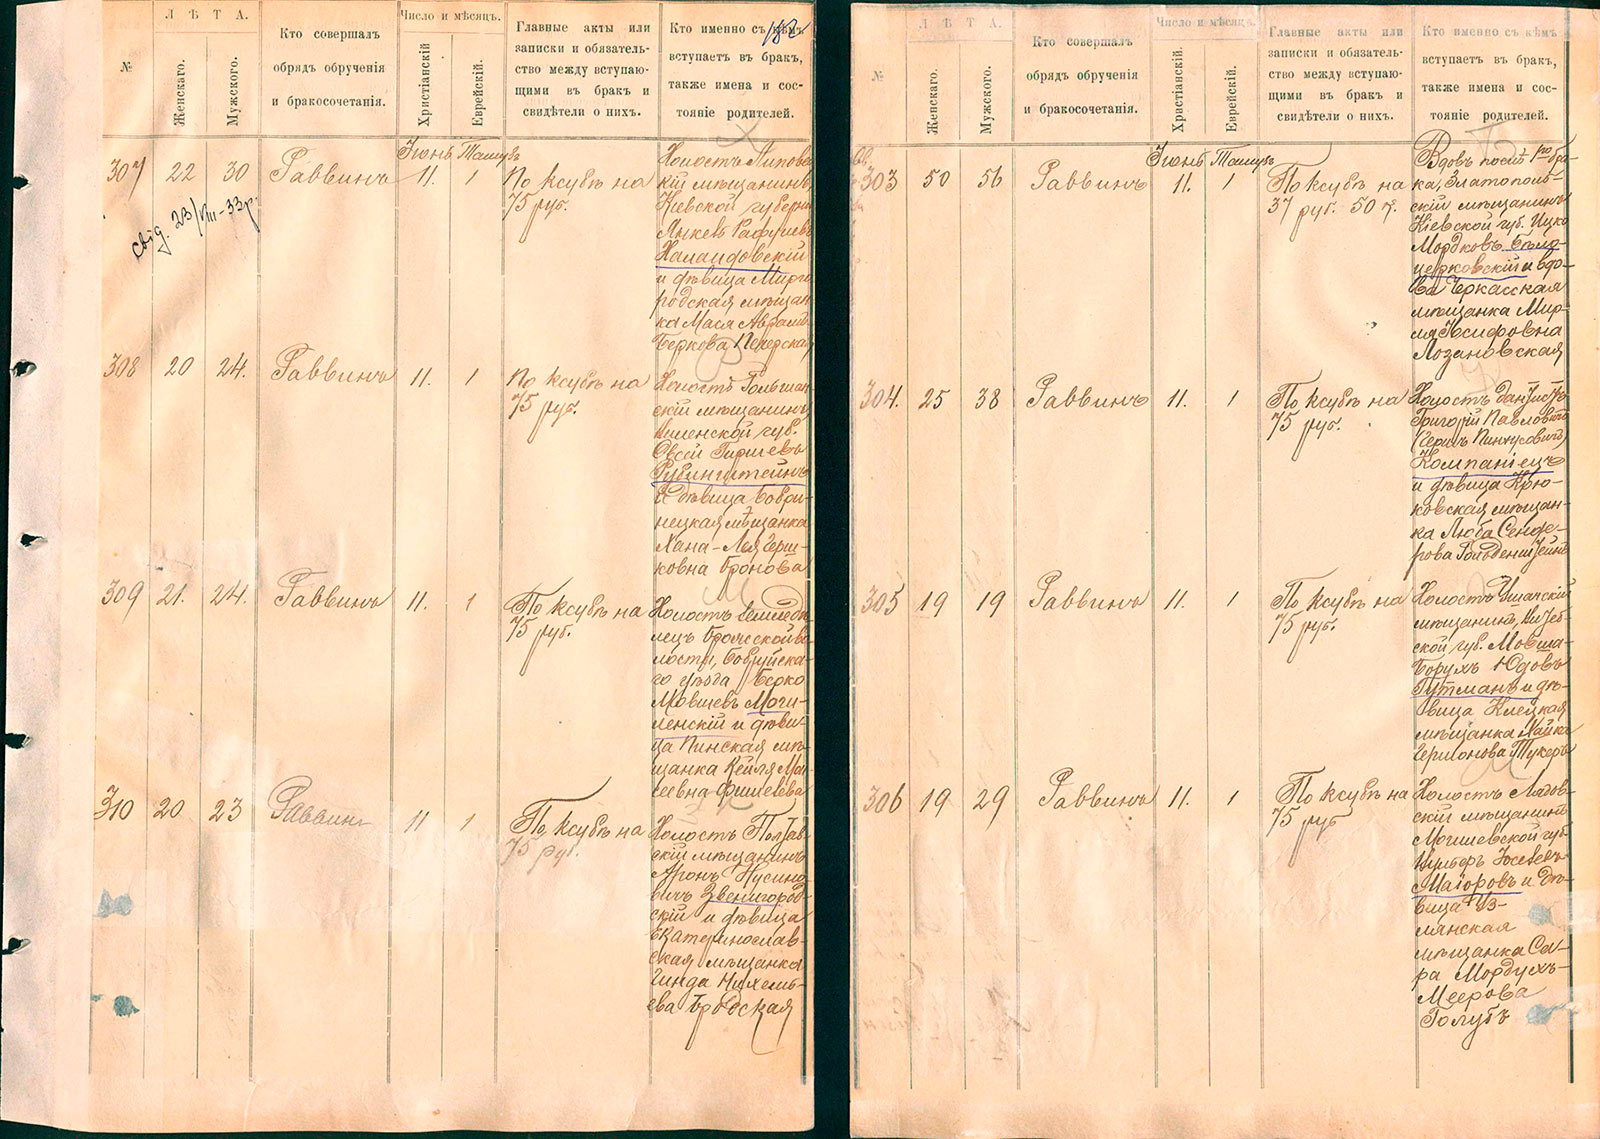 182
№
ЛѢТА.
Женскаго.
Мужского.
Кто совершалъ
обрядъ обрученія
и бракосочетанія.
Число и мѣсяцъ.
Христіанскій
Еврейскій.
Главные акты или
записки и обязатель-
ство между вступаю-
щими въ бракъ и
свидѣтели о нихъ.
Кто именно съ кѣмъ
вступаетъ въ бракъ,
также имена и сос-
тояніе родителей.
Іюнь Тамузъ
307 22 30 Раввинъ 11. 1 По ксубѣ на
75 руб.
Холостъ Липовец-
кій мѣщанинъ
Кіевской губерніи
Янкевъ
и дѣвица Мирго-
родская мѣщан-
ка Мася Аврамъ-
Беркова Пекерская
свід. 23/VIII-33р.
308 20 24. Раввинъ 11. 1 По ксубѣ на
75 руб.
Холостъ Гольшан-
скій мѣщанинъ,
Виленской губ.
Овсей Гиршевъ
Рубинштейнъ
и дѣвица Бобри-
нецкая мѣщанка
Хана-Лея Герш-
ковна Бронова
309 21. 24. Раввинъ 11. 1 По ксубѣ на
75 руб.
Холостъ земледѣ-
лецъ Брожской во-
лости, Бобруйска-
го уѣзда Берко
Мовшевъ Моги-
ленскій и дѣви-
ца Пинская мѣ-
щанка Кейля Мои-
сеевна Фишелева
310 20 23 Раввинъ 11 1 По ксубѣ на
75 руб.
Холостъ Полтав-
скій мѣщанинъ
Аронъ Нусино-
вичъ Звенигород-
скій и дѣвица
Екатеринослав-
ская мѣщанка
Гинда Нихемь-
ева Бродская
№
ЛѢТА.
Женскаго.
Мужского.
Кто совершалъ
обрядъ обрученія
и бракосочетанія.
Число и мѣсяцъ.
Христіанскій
Еврейскій.
Главные акты или
записки и обязатель-
ство между вступаю-
щими въ бракъ и
свидѣтели о нихъ.
Кто именно съ кѣмъ
вступаетъ въ бракъ,
также имена и сос-
тояніе родителей.
Іюнь Тамузъ
303 50 56 Раввинъ 11. 1 По ксубѣ на
37 руб. 50 к.
Вдовъ послѣ 1го бра-
ка, Златополь-
скій мѣщанинъ
Кіевской губ. Ицко
Мордковъ Бѣло-
церковскій и вдо-
ва Черкасская
мѣщанка Мир-
ля Іосифовна
Лозановская
304. 25 38 Раввинъ 11. 1 По ксубѣ на
75 руб.
Холостъ дантистъ
Григорій Павловичъ
(Гершъ Пинхусовичъ)
Компаніецъ
и дѣвица Крю-
ковская мѣщан-
ка Люба Сенде-
рова
305 19 19 Раввинъ 11. 1 По ксубѣ на
75 руб.
Холостъ Ушачскій
мѣщанинъ, Витеб-
ской губ. Мовша-
Борухъ Юдовъ
Гутманъ и дѣ-
вица Клецкая
мѣщанка Хайка
Гершонова Тукеръ
306 19 29 Раввинъ 11. 1 По ксубѣ на
75 руб
Холостъ Лядов-
скій мѣщанинъ
Могилевской губ.
Вульфъ Іосевовъ
Маіоровъ и дѣ-
вица Из-
мянская
мѣщанка Са-
ра Мордухъ-
Меерова
Голубъ